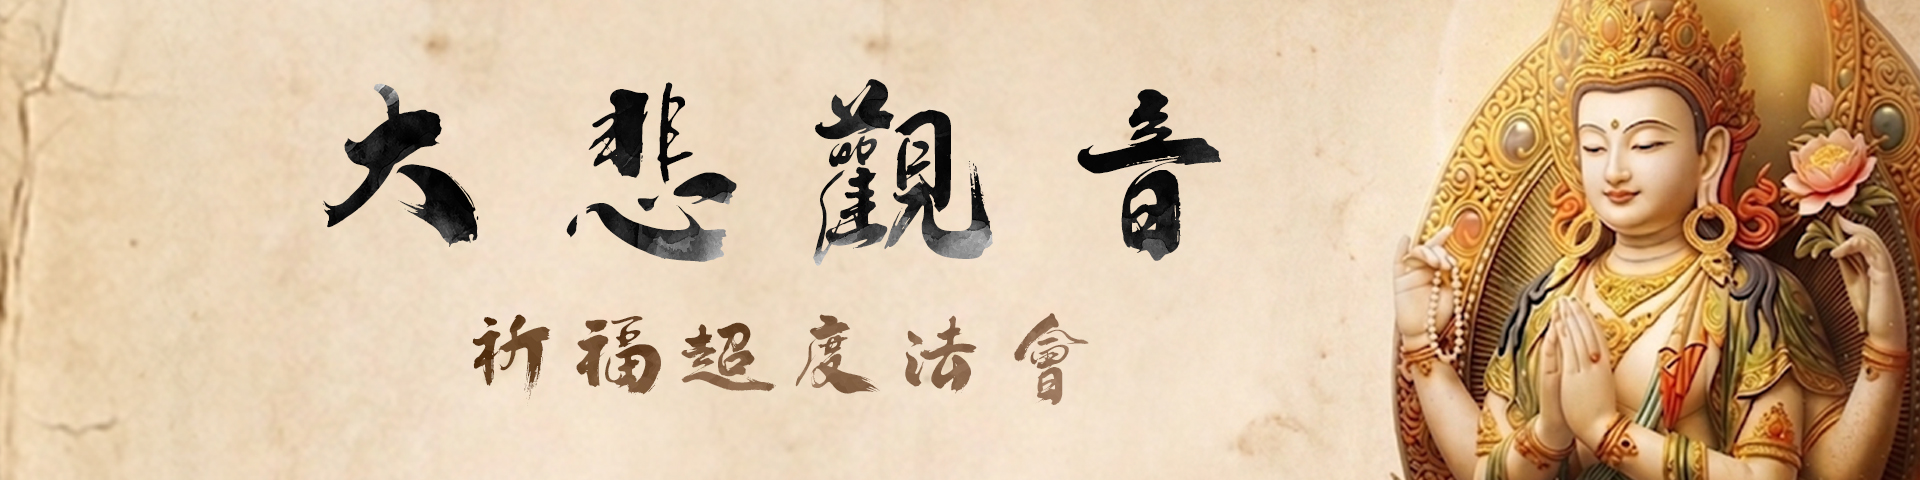 大悲觀音
祈福超度法會